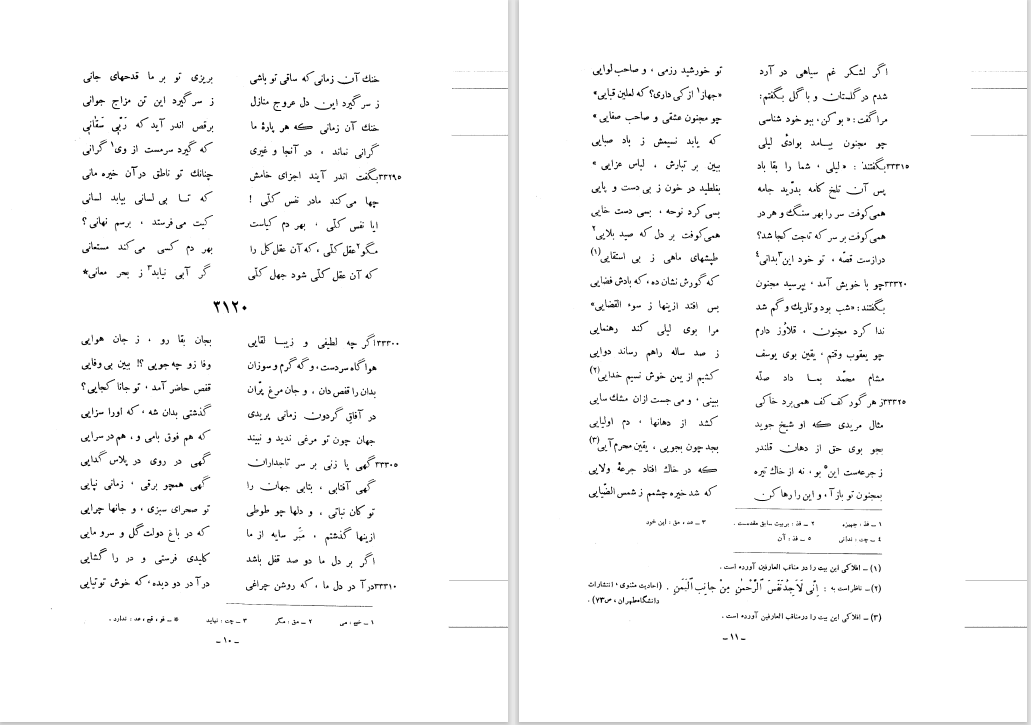 خنك آن زمانی که ساقی تو باشی بریزی تو بر ما قدحهای جانی
ز سر گیرد این دل عروج منازل ز سر گیرد این تن مزاج جوانی
خنك آن زمانی که هر پارهٔ ما برقص اندر آید که رَبّی سَقانی
گرانی نماند ، در آنجا و غیری که گیرد سرمست از وی۱ گرانی
۳۳۲۹۵ بگفت اندر آیند اجزای خامش چنانك تو ناطق در آن خیره مانی
چها می کند مادر نفس کلّی ! که تا بی لسانی بیابد لسانی
ایا نفس کلّی ، بهر دم کیاست کیت می فرستد ، برسم نهانی ؟
مگو۲ عقل کلّی ، که آن عقل کل را بهر دم کسی می کند مستعانی
که آن عقل کلّی شود جهل کلّی گر آبی نیابد۳ ز بحر معانی*
۳۱۲۰
۳۳۳۰۰ اگر چه لطیفی و زیبا لقایی بجان بقا رو ، ز جان هوایی
هواگاه سردست ، وگه گرم و سوزان وفا زو چه جویی ؟! ببین بی وفایی
بدان را قفص دان ، و جان مرغ پرّان قفص حاضر آمد ، تو جانا کجایی؟
در آفاق گردون زمانی پریدی گذشتی بدان شه ، که اورا سزایی
جهان چون تو مرغی ندید و نبیند که هم فوق بامی و ، هم در سرایی
۳۳۳۰۵ گهی پا زنی بر سر تاجداران گهی در روی در پلاس گدایی
گهی آفتابی ، بتابی جهان را گهی همچو برقی ، زمانی نپایی
تو کان نباتی ، و دلها چو طوطی تو صحرای سبزی ، و جانها چرایی
ازینها گذشتم ، مَبَر سایه از ما که در باغ دولت گل و سرو مایی
اگر بر دل ما دو صد قفل باشد کلیدی فرستی و در را گشایی
۳۳۳۱۰ درآ در دل ما ، که روشن چراغی درآ در دو دیده ، که خوش توتیایی
۱ ــ خج ، می ۲ ــ مق : مگر ۳ ــ چت : نیاید * ــ فو ، قح ، عد : ندارد .
ــ ۱۰ ــ
اگر لشکر غم سیاهی در آرد تو خورشید رزمی ، و صاحب لوایی
شدم در گلستان و با گل بگفتم : «جهاز۱ از کی داری؟ که لعلین قبایی»
مرا گفت : « بو کن ، ببو خود شناسی چو مجنون عشقی و صاحب صفایی »
چو مجنون بیامد بوادی لیلی که یابد نسیمش ز باد صبایی
۳۳۳۱۵ بگفتند : «لیلی ، شما را بقا باد ببین بر تبارش ، لباس عزایی »
پس آن تلخ کامه بدرّید جامه بغلطید در خون ز بی دست و پایی
همی کوفت سر را بهر سنگ و هر در بسی کرد نوحه ، بسی دست خایی
همی کوفت بر سر که تاجت کجا شد؟ همی کوفت بر دل که صید بلایی۲
درازست قصّه ، تو خود این۳ بدانی۴ طپشهای ماهی ز بی استقایی (۱)
۳۳۳۲۰ چو با خویش آمد ، بپرسید مجنون که گورش نشان ده ، که بادش فضایی
بگفتند: «شب بود و تاریك و گم شد بس افتد ازینها ز سوء القضایی»
ندا کرد مجنون ، قلاوز دارم مرا بوی لیلی کند رهنمایی
چو یعقوب وقتم ، یقین بوی یوسف ز صد ساله راهم رساند دوایی
مشام محمّد بما داد صلّه کشیم از یمن خوش نسیم خدایی (۲)
۳۳۳۲۵ ز هر گور کف کف همی برد خاکی ببینی ، و می جست ازان مشك سایی
مثال مریدی که او شیخ جوید کشد از دهانها ، دم اولیایی
بجو بوی حق از دهان قلندر بجد چون بجویی ، یقین محرم آیی (۳)
ز جرعه ست این۵ بو ، نه از خاك تیره که در خاك افتاد جرعهٔ ولایی
بمجنون تو بازآ ، و این را رها کن که شد خیره چشمم ز شمس الضّیایی
۱ ــ فذ : جهیزه ۲ ــ فذ : بر بیت سابق مقدمست . ۳ ــ عد ، مق : این خود
۴ ــ چت : ندانی ۵ ــ فذ : آن
(۱) ــ افلاکی این بیت را در مناقب العارفین آورده است .
(۲) ــ ناظراست به : اِنّی لَاَجِدُ نَفَسَ الرَّحْمٰنِ مِنْ جانِبِ الْیَمَنِ . (احادیث مثنوی ، انتشارات
دانشگاه طهران ، ص ۷۳) .
(۳) ــ افلاکی این بیت را در مناقب العارفین آورده است .
ــ ۱۱ ــ